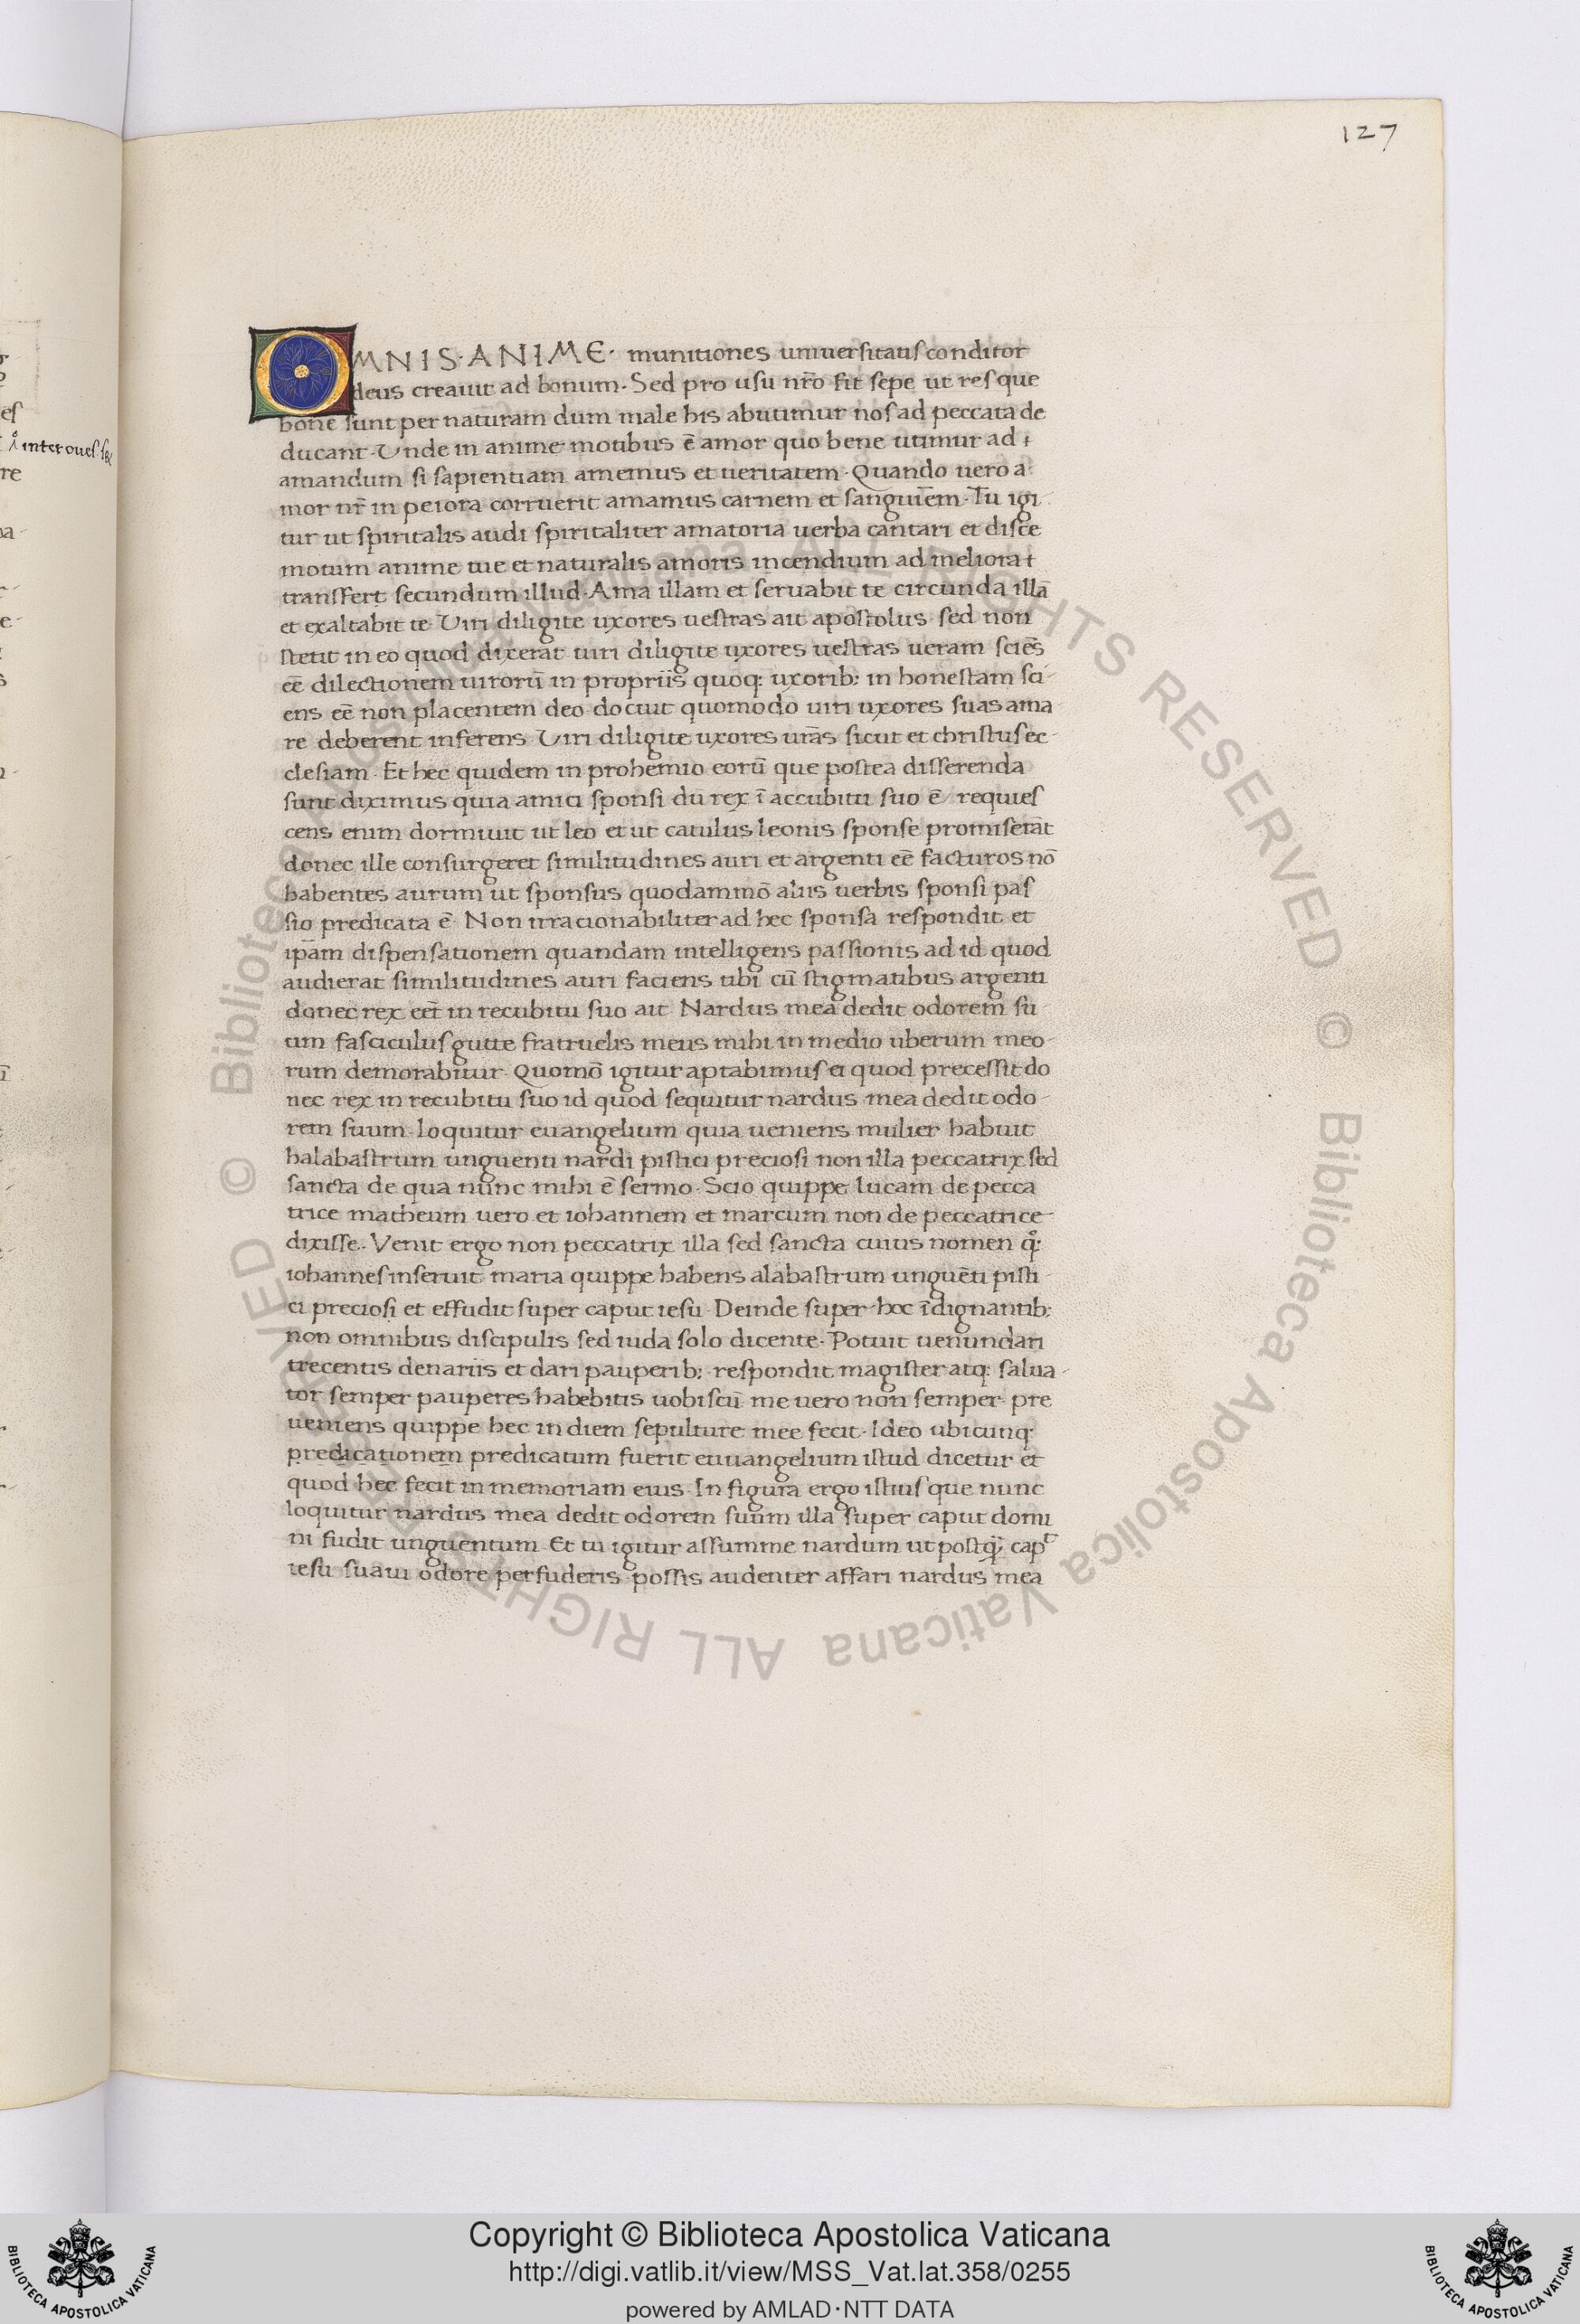 127
OMNIS·ANIME· munitiones uniuersitatis conditor
deus creauit ad bonum. Sed pro usu nr̄o fit sepe ut res que
bone sunt per naturam dum male his abutimur nos ad peccata de
ducant. Unde in anime motibus ē amor quo bene utimur ad
amandum si sapientiam amemus et ueritatem. Quando uero a
mor nr̄ in peiora corruerit amamus carnem et sanguinem. Tu igi
tur ut spiritalis audi spiritaliter amatoria uerba cantari et disce
motum anime tue et naturalis amoris incendium ad meliora
transfert secundum illud. Ama illam et seruabit te circunda illā
et exaltabit te. Uiri diligite uxores uestras ait apostolus sed non
stetit in eo quod dixerat uiri diligite uxores uestras ueram sciēs
eē dilectionem uirorū in propriis quoq; uxorib; in honestam sci-
ens eē non placentem deo docuit quomodo uiri uxores suas ama
re deberent inferens Uiri diligite uxores urās sicut et christus ec-
clesiam. Et hec quidem in prohemio eorū que postea disserenda
sunt diximus quia amici sponsi dū rex ī accubitu suo ē requies
cens enim dormiuit ut leo et ut catulus leonis sponse promiserāt
donec ille consurgeret similitudines auri et argenti eē facturos nō
habentes aurum ut sponsus quodammō aliis uerbis sponsi pas
sio predicata ē. Non irracionabiliter ad hec sponsa respondit et
ip̄am dispensationem quandam intelligens passionis ad id quod
audierat similitudines auri faciens tibi cū stigmatibus argenti
donec rex eēt in recubitu suo ait Nardus mea dedit odorem su
um fasciculus gutte fratruelis meus mihi in medio uberum meo-
rum demorabitur. Quomō igitur aptabimus ei quod precessit do
nec rex in recubitu suo id quod sequitur nardus mea dedit odo-
rem suum. loquitur euangelium quia ueniens mulier habuit
halabastrum unguenti nardi pistici preciosi non illa peccatrix sed
sancta de qua nunc mihi ē sermo. Scio quippe lucam de pecca
trice matheum uero et iohannem et marcum non de peccatrice
dixisse. Venit ergo non peccatrix illa sed sancta cuius nomen
iohannes inseruit maria quippe habens alabastrum unguēti pisti-
ci preciosi et effudit super caput iesu. Deinde super hoc īdignantib;
non omnibus discipulis sed iuda solo dicente. Potuit uenundari
trecentis denariis et dari pauperib; respondit magister atq; salua-
tor semper pauperes habebitis uobiscū me uero non semper. pre
ueniens quippe hec in diem sepulture mee fecit. Ideo ubicunq;
predicationem predicatum fuerit euuangelium istud dicetur et
quod hec fecit in memoriam eius. In figura ergo istius que nunc
loquitur nardus mea dedit odorem suum illa super caput domi
ni fudit unguentum. Et tu igitur assumme nardum ut postq̄; cap
iesu suaui odore perfuderis possis audenter affari nardus mea
inter oues
© Biblioteca Apostolica Vaticana ALL RIGHTS RESERVED © Biblioteca Apostolica Vaticana ALL RIGHTS RESERVED
Copyright © Biblioteca Apostolica Vaticana
http://digi.vatlib.it/view/MSS_Vat.lat.358/0255
powered by AMLAD·NTT DATA
BIBLIOTECA APOSTOLICA VATICANA
BIBLIOTECA APOSTOLICA VATICANA